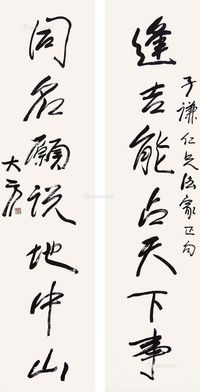 逢吉能占天下事
子谦仁兄法家正句
同名願说地中山
大方